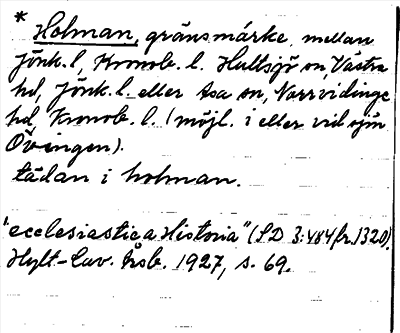 * Holman, gränsmärke mellan
Jönk. l, Kronob. l. Hultsjö sn, Västra
hd, Jönk. l. eller Asa sn, Norrvidinge
hd Kronob. l. (möjl. i eller vid sjön
Övingen).
tädan i holman.
"ecclesiastica Historia" (SD 3:484 fr. 1320).
Hylt-Cav. Årsb. 1927, s. 69.